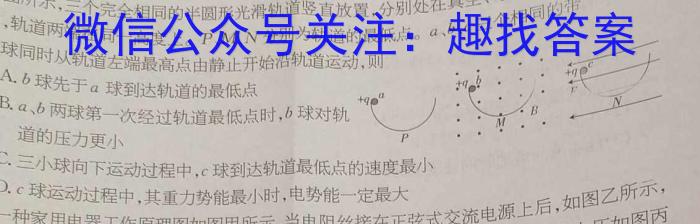 图所示,三个完全相同的半圆形光滑轨道竖直放置,分别处在真空、
微信公众号关注:趣找答案
,轨道两
球同时从轨道左端最高点由静止开始沿轨道运动,则
A. b球先于a 球到达轨道的最低点
B. a、b两球第一次经过轨道最低点时,b 球对轨
道的压力更小
C. 三小球向下运动过程中,c球到达轨道最低点的速度最小
D. c 球运动过程中,其重力势能最小时,电势能一定最大
+q a
P
+q b
M B
+q c
F N
一种家用电器工作原理图如图甲所示,当电阻丝接在正弦式交流电源上后,如图乙所示,